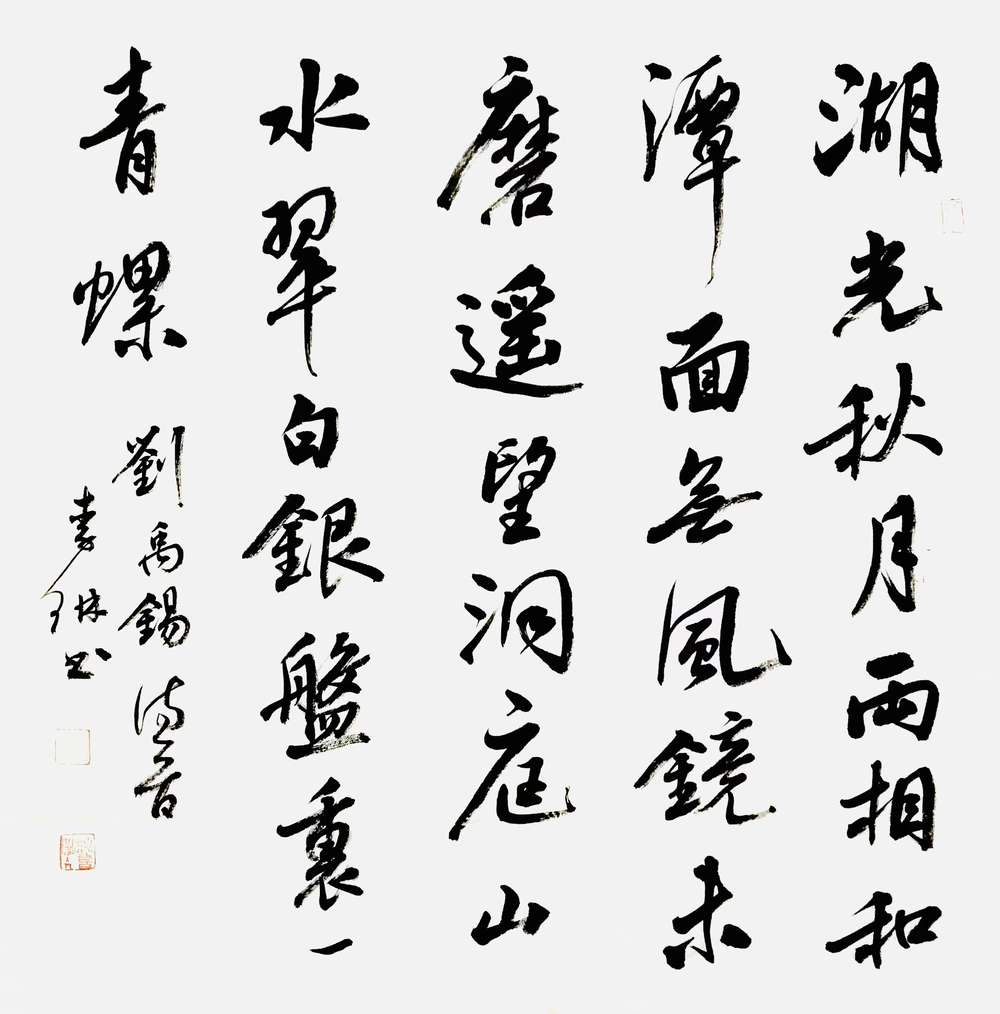 湖光秋月兩相和
潭面無風鏡未
磨遥望洞庭山
水翠白銀盤裏一
青螺 劉禹錫詩一首
琳书